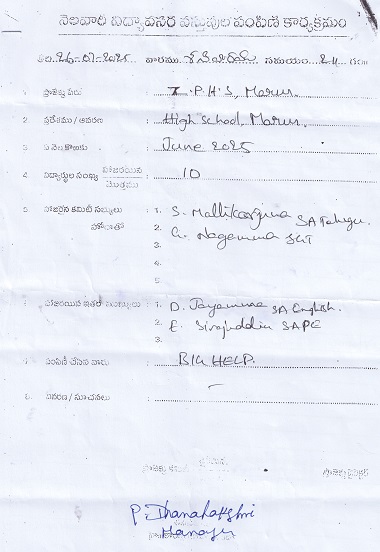 నెలవారి విద్యావసర వస్తువుల పంపిణి కార్యక్రమం
తేది. 26-07-2025 వారము. శనివారము సమయం. 2.4
1. ప్రాజెక్టు పేరు Z.P.H.S, Marur.
2. ప్రదేశము / ఆవరణ High School, Marur.
3. ఏ నెల కొఱకు June 2025
4. విద్యార్థుల సంఖ్య హాజరయిన / మొత్తము 10
5. హాజరైన కమిటీ సభ్యులు 1. S. Mallikarjuna SA Telugu.
హోదాతో 2. G. Nagamma SGT
3.
4.
5.
హాజరయిన ఇతర సభ్యులు : 1. D. Jayamma SA English.
2. E. Sirajuddin SAPE
3.
పంపిణీ చేసిన వారు BIG HELP.
8. వివరణ / సూచనలు –
ప్రాజెక్టు
P. Dhanalakshmi
Manager